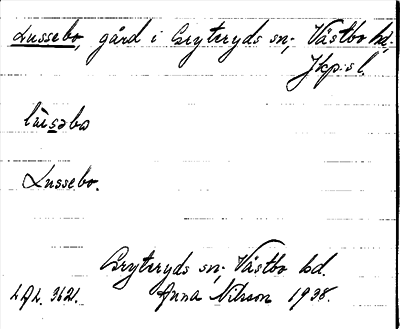 Lussebo, gård i Gryteryds sn, Västbo hd,
Jkp:s l.
lùsəbo
Lussebo.
Gryteryds sn, Västbo hd.
LAL. 3621. Anna Nilsson 1938.